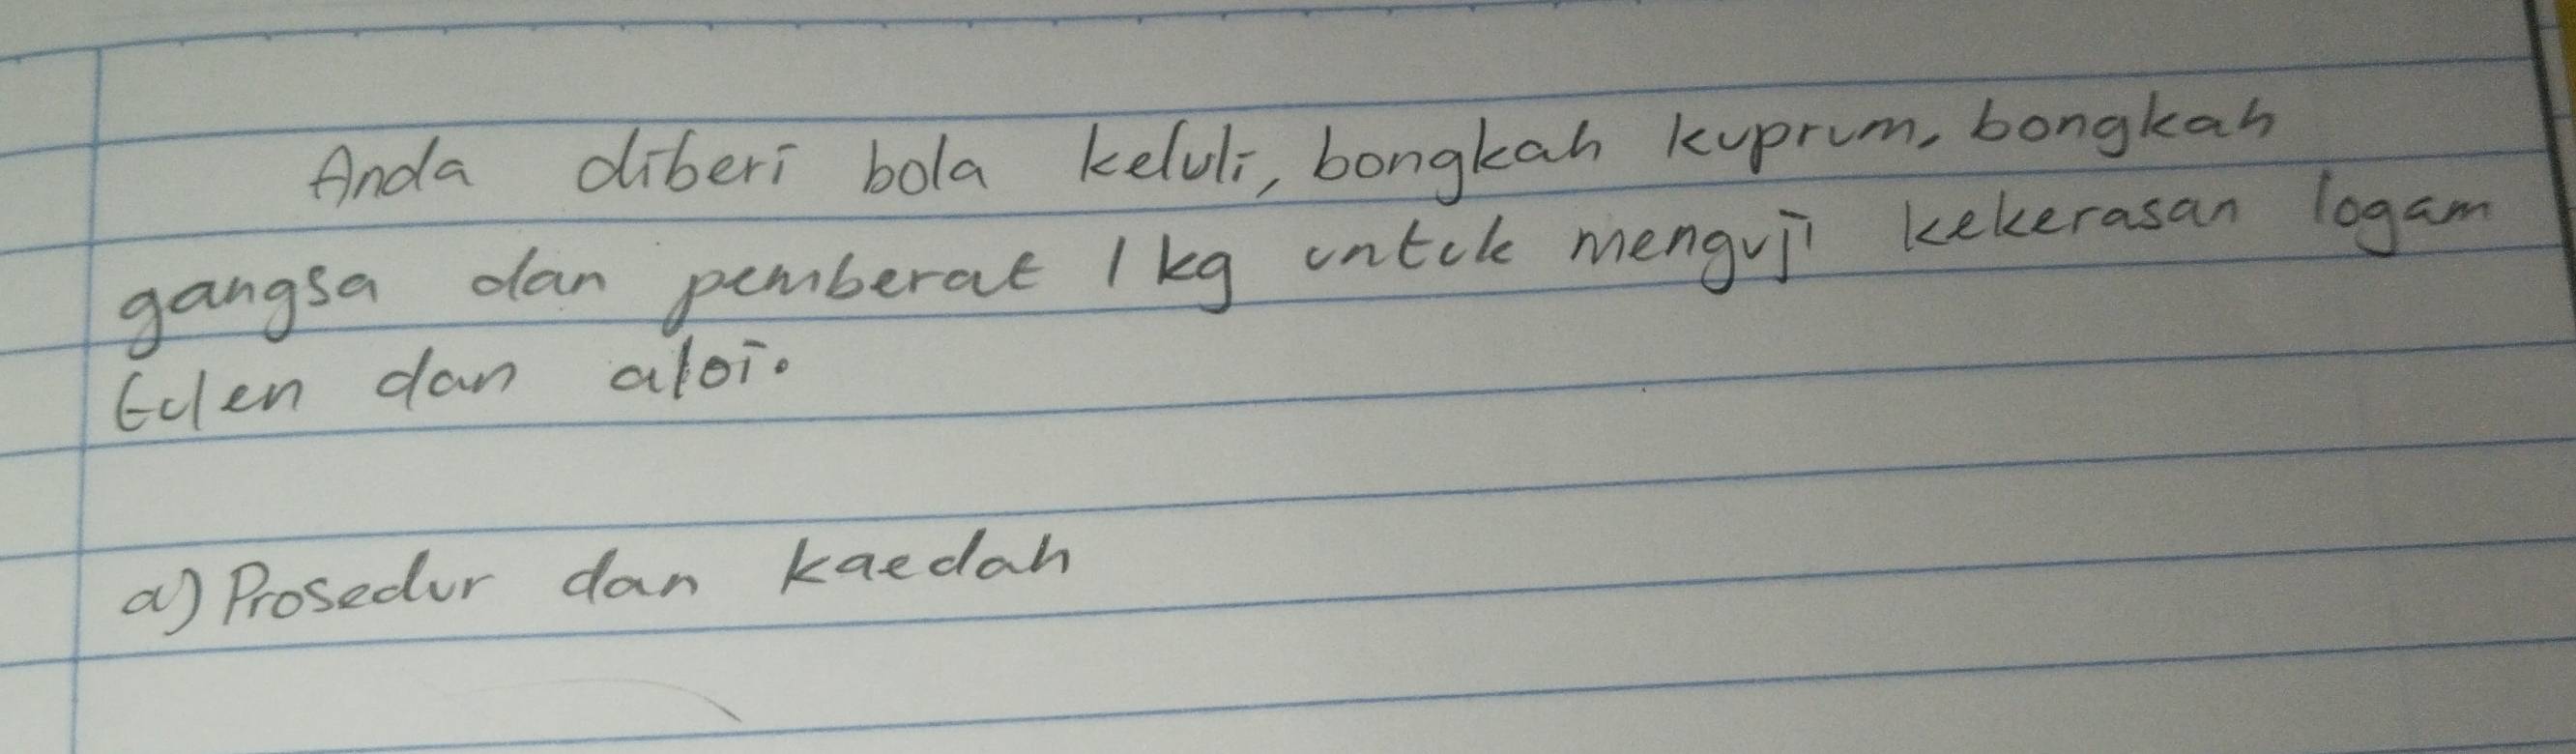 Anda diberi bola keluli, bongkah kuprum, bongkah
gangsa dan pemberat 1 kg untuk menguji kekerasan logam
tulen dan aloi.
a) Prosedur dan kaedah